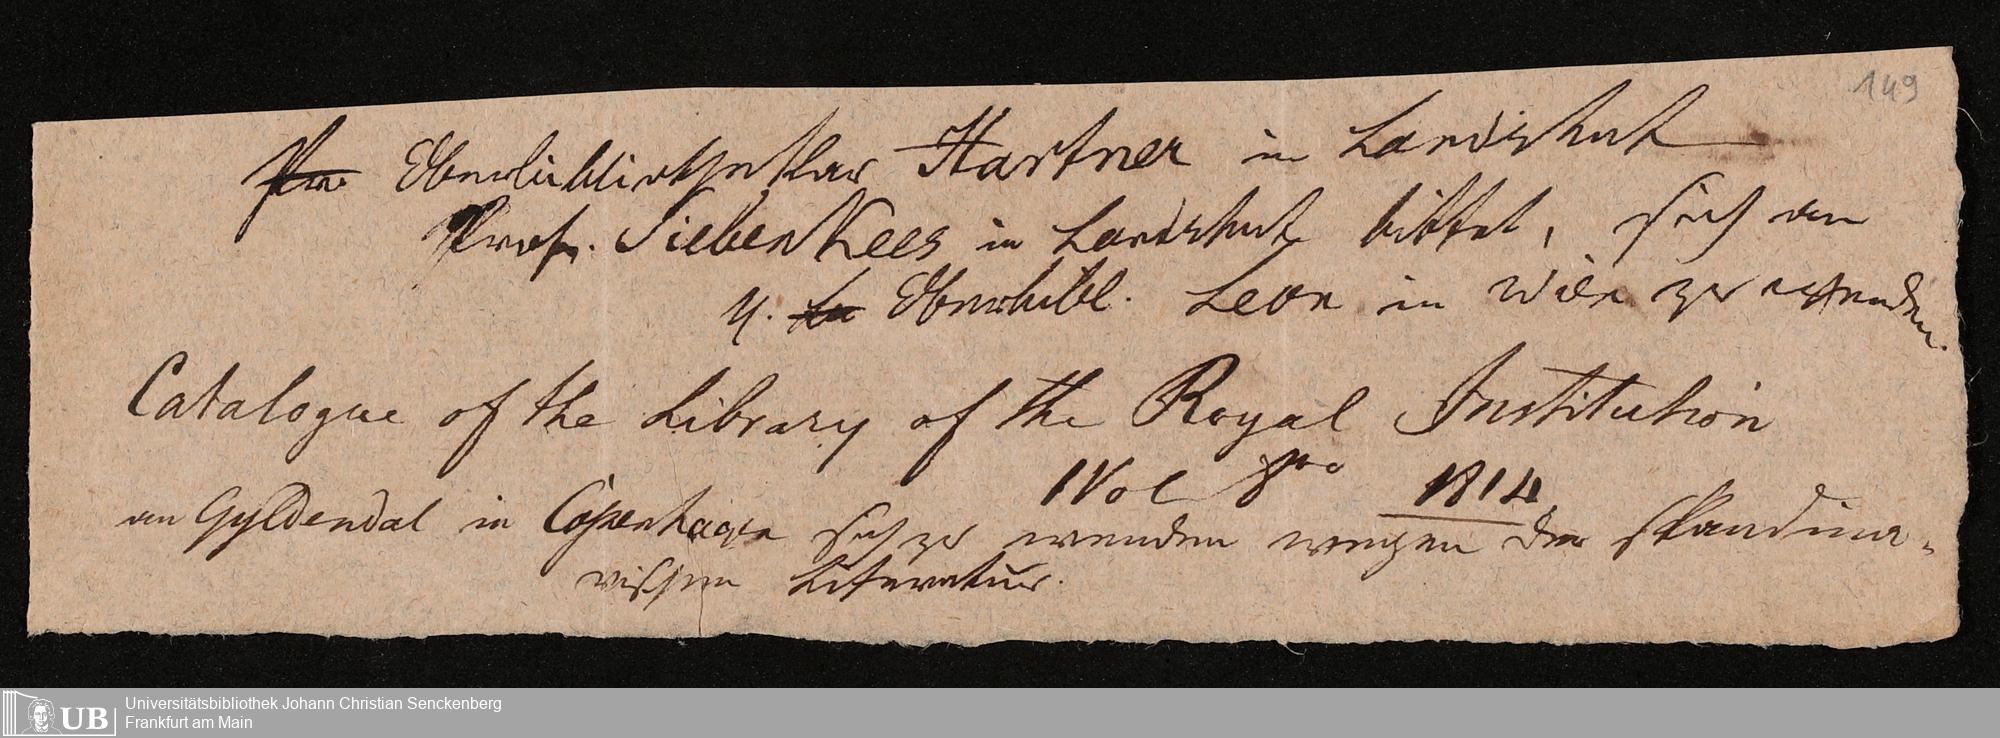 149
Oberbibliothekar Hartner in Landshut
Prof. Siebenkees in Landshut bittet, sich an
u. Oberbibl. Leon in Wien zu wenden.
Catalogue of the Library of the Royal Institution
1 Vol 8vo 1814
an Gyldendal in Copenhagen sich zu wenden wegen der skandina-
vischen Literatur.
Universitätsbibliothek Johann Christian Senckenberg
Frankfurt am Main
UB